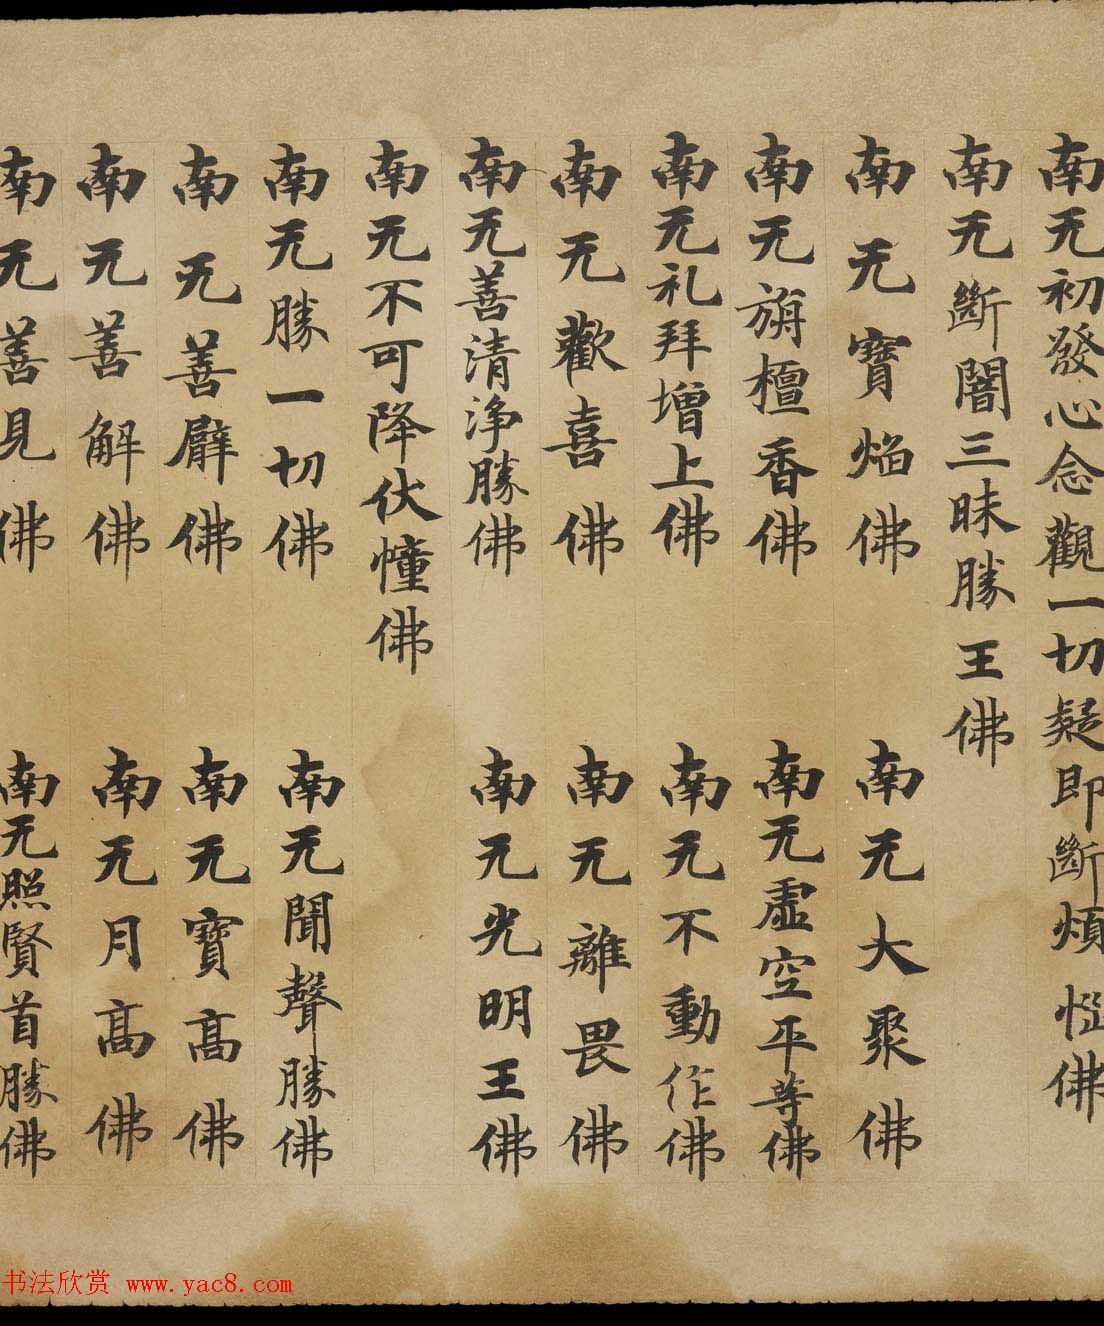 南无初發心念觀一切疑即斷煩惱佛
南无斷闇三昧勝王佛
南无寶焰佛 南无大聚佛
南无旃檀香佛 南无虛空平等佛
南无礼拜增上佛 南无不動作佛
南无歡喜佛 南无離畏佛
南无善清淨勝佛 南无光明王佛
南无不可降伏憧佛
南无勝一切佛 南无聞聲勝佛
南无善臂佛 南无寶高佛
南无善解佛 南无月高佛
南无善見佛 南无照賢首勝佛
书法欣赏 www.yac8.com